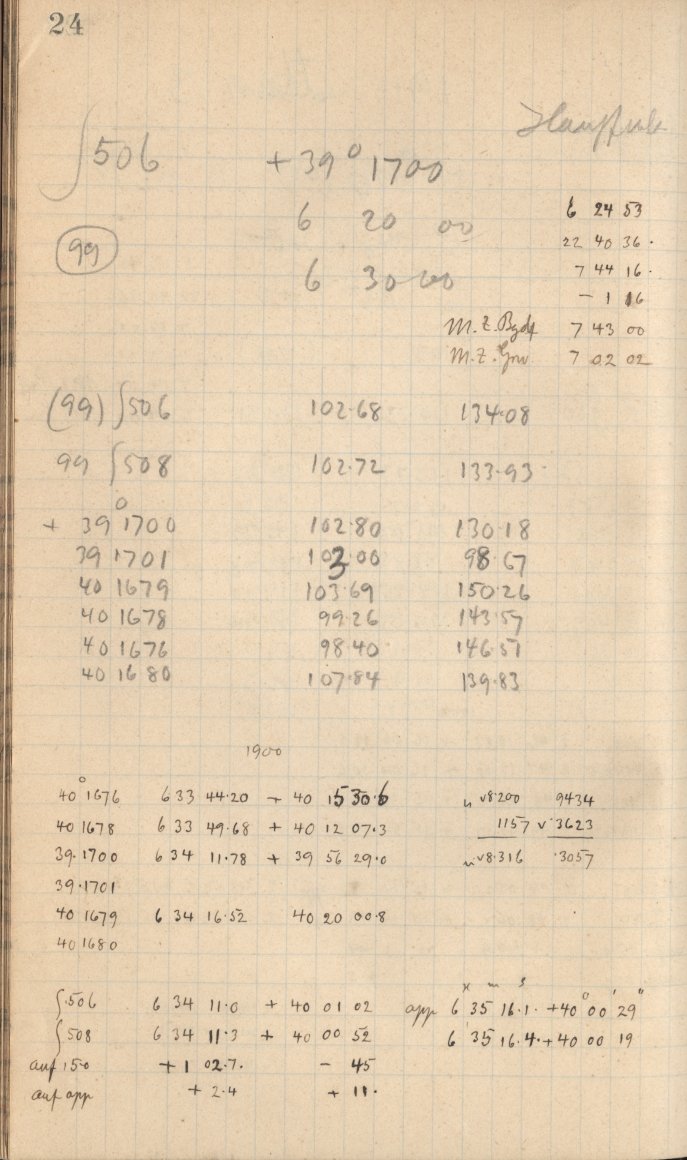 24
∫506 +39° 1700
6 24 53
6 20 00
22 40 36.
99
7 44 16.
6 30 00
– 1 16
M.Z. Bgdf 7 43 00
M.Z. Grw 7 02 02
(99) ∫506 102.68 134.08
99 ∫508 102.72 133.93
+ 39° 1700 102.80 130.18
39 1701 103.00 98.67
40 1679 103.69 150.26
40 1678 99.26 143.57
40 1676 98.40 146.51
40 1680 107.84 139.83
1900
40° 1676 6 33 44.20 + 40 15 30.6 n v8.200 9434
40 1678 6 33 49.68 + 40 12 07.3 1157 v.3623
39.1700 6 34 11.78 + 39 56 29.0 n v8.316 .3057
39.1701
40 1679 6 34 16.52 40 20 00.8
40 1680
∫.506 6 34 11.0 + 40 01 02 app 6 35 16.1. +40° 00' 29"
∫508 6 34 11.3 + 40 00 52 6 35 16.4. +40 00 19
auf 150 +1 02.7. – 45
auf app + 2.4 + 11.